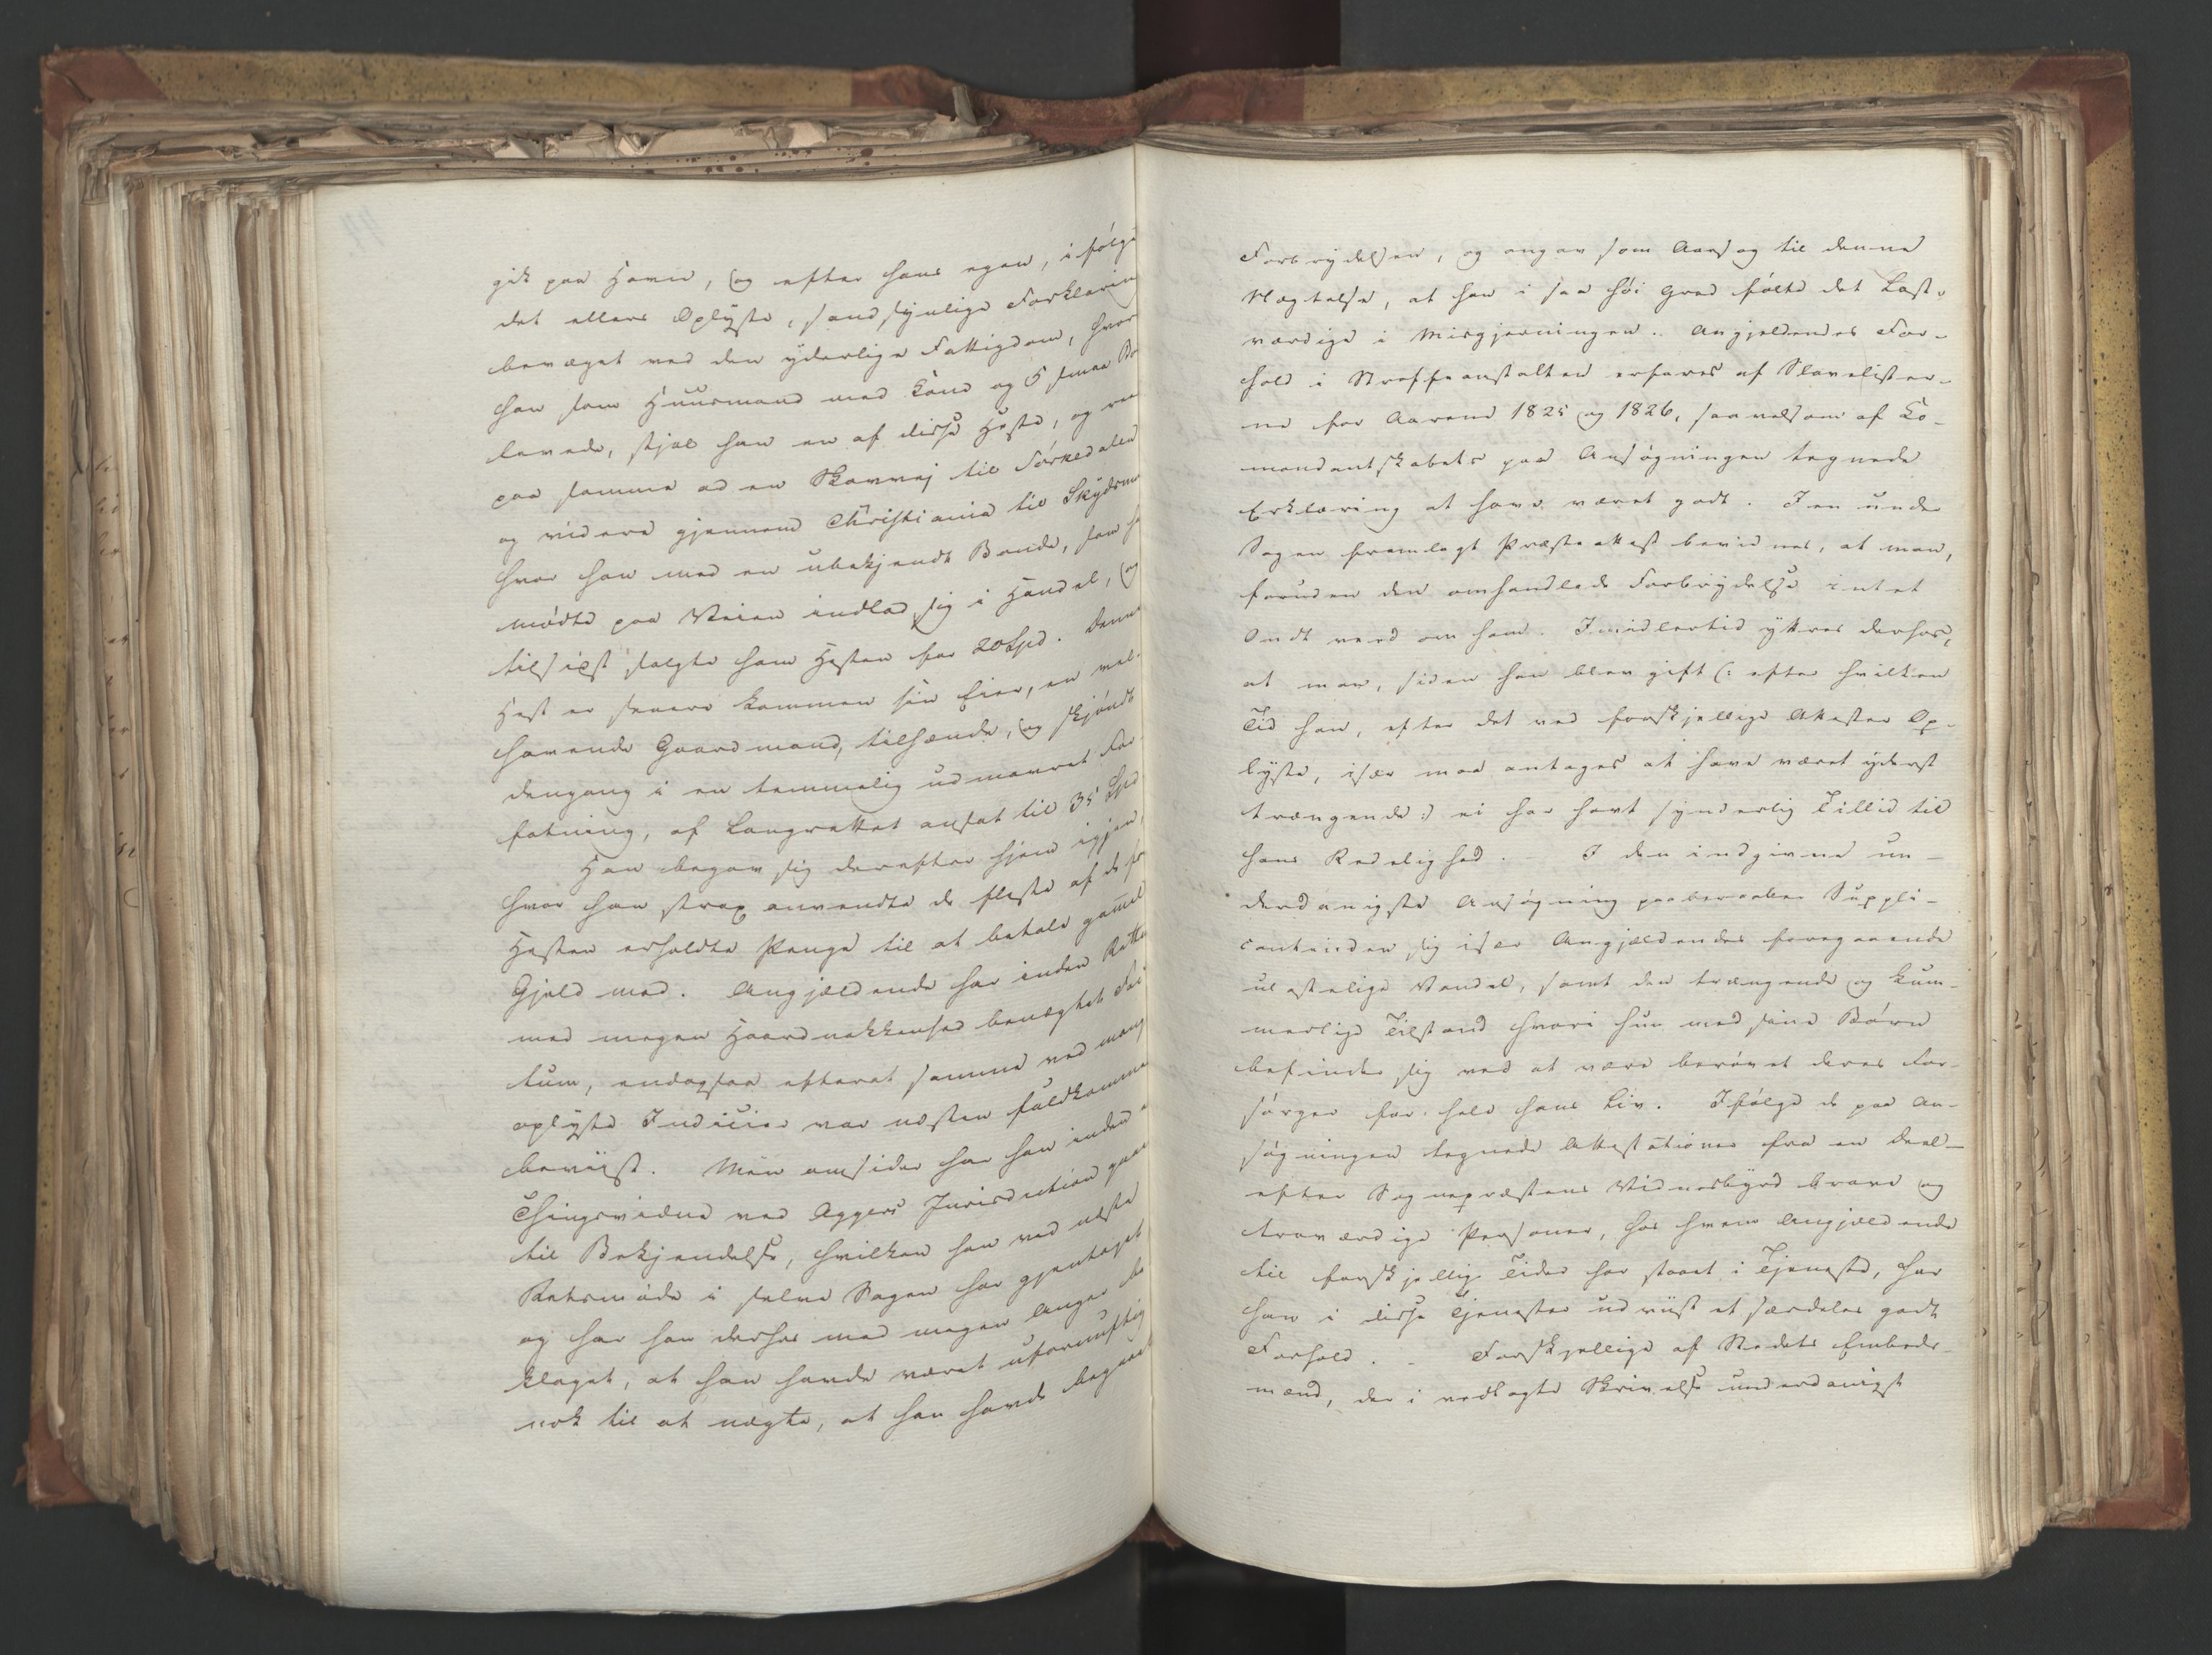 gik paa Havn, og efter hans egen, i følge
det ellers Oplyste, sandsynlige Forklaring
bevæget ved den yderlige Fattigdom, hvor
han som Huusmand med Kone og 5 smaa Bø
levede, stjal han en af disse Heste, og re
paa samme ad en Skovvej til Sørkedalen
og videre gjennem Christiania til Skydsm
hvor han med en ubekjendt Bonde, som h
mødte paa Veien indlod sig i Handel, og
tilsidst solgte ham Hesten for 20 Spd. Denne
Hest er senere kommen sin Eier, en vel-
havende Gaardmand, tilhænde, og skjøndt
dengang i en temmelig udmavret For-
fatning, af Laugrettet ansat til 35 Spd
Han begav sig derefter hjem igjen,
hvor han strax anvendte de fleste af de for
Hesten erholdte Penge til at betale gamel
Gjeld med. Angjældende har inden Rette
med megen Haardnakkenhed benægtet Fac
tum, endogsaa efterat samme ved mang
oplyste Indicier var næsten fuldkomme
beviist. Men omsider har han inden e
Thingsvidne ved Aggers Jurisdiction gaae
til Bekjendelse, hvilken han ved næste
Retsmøde i selve Sagen har gjentaget
og har han derhos med megen Anger be
klaget, at han havde været ufornuftig
nok til at nægte, at han havde begaaet
Forbrydelsen, og angav som Aarsag til denne
Nægtelse, at han i saa høi Grad følte det Last-
værdige i Misgjerningen. Angjeldendes For-
hold i Straffeanstalten erfares af Slavelister-
ne for Aarene 1825 og 1826, saavelsom af Co-
mandantskabets paa Ansøgningen tegnede
Erklæring at have været godt. I en under
Sagen fremlagt Præsteattest bevidnes, at man,
foruden den omhandlede Forbrydelse intet
Ondt veed om ham. Imidlertid yttres derhos,
at man, siden han blev gift (: efter hvilken
Tid han, efter det ved forskjellige Attester Op-
lyste, især maa antages at have været yderst
trængende :) ei har havt synderlig Tillid til
hans Redelighed. - I den indgivne un-
derdanigste Ansøgning paaberaaber Suppli-
cantinden sig især Angjældendes foregaaende
ulastelige Vandel, samt den trængende og kum-
merlige Tilstand hvori hun med sine Børn
befinder sig ved at være berøvet deres For-
sørger for hele hans Liv. Ifølge de paa An-
søgningen tegnede Attestationer fra en Deel-
efter Sognepræstens Vidnesbyrd brave og
troværdige Personer, hos hvem Angjældende
til forskjellige Tider har staaet i Tjeneste, har
han i disse Tjenester udviist et særdeles godt
Forhold. - Forskjellige af Stedets Embeds-
mænd, der i vedlagte Skrivelse underdanigst